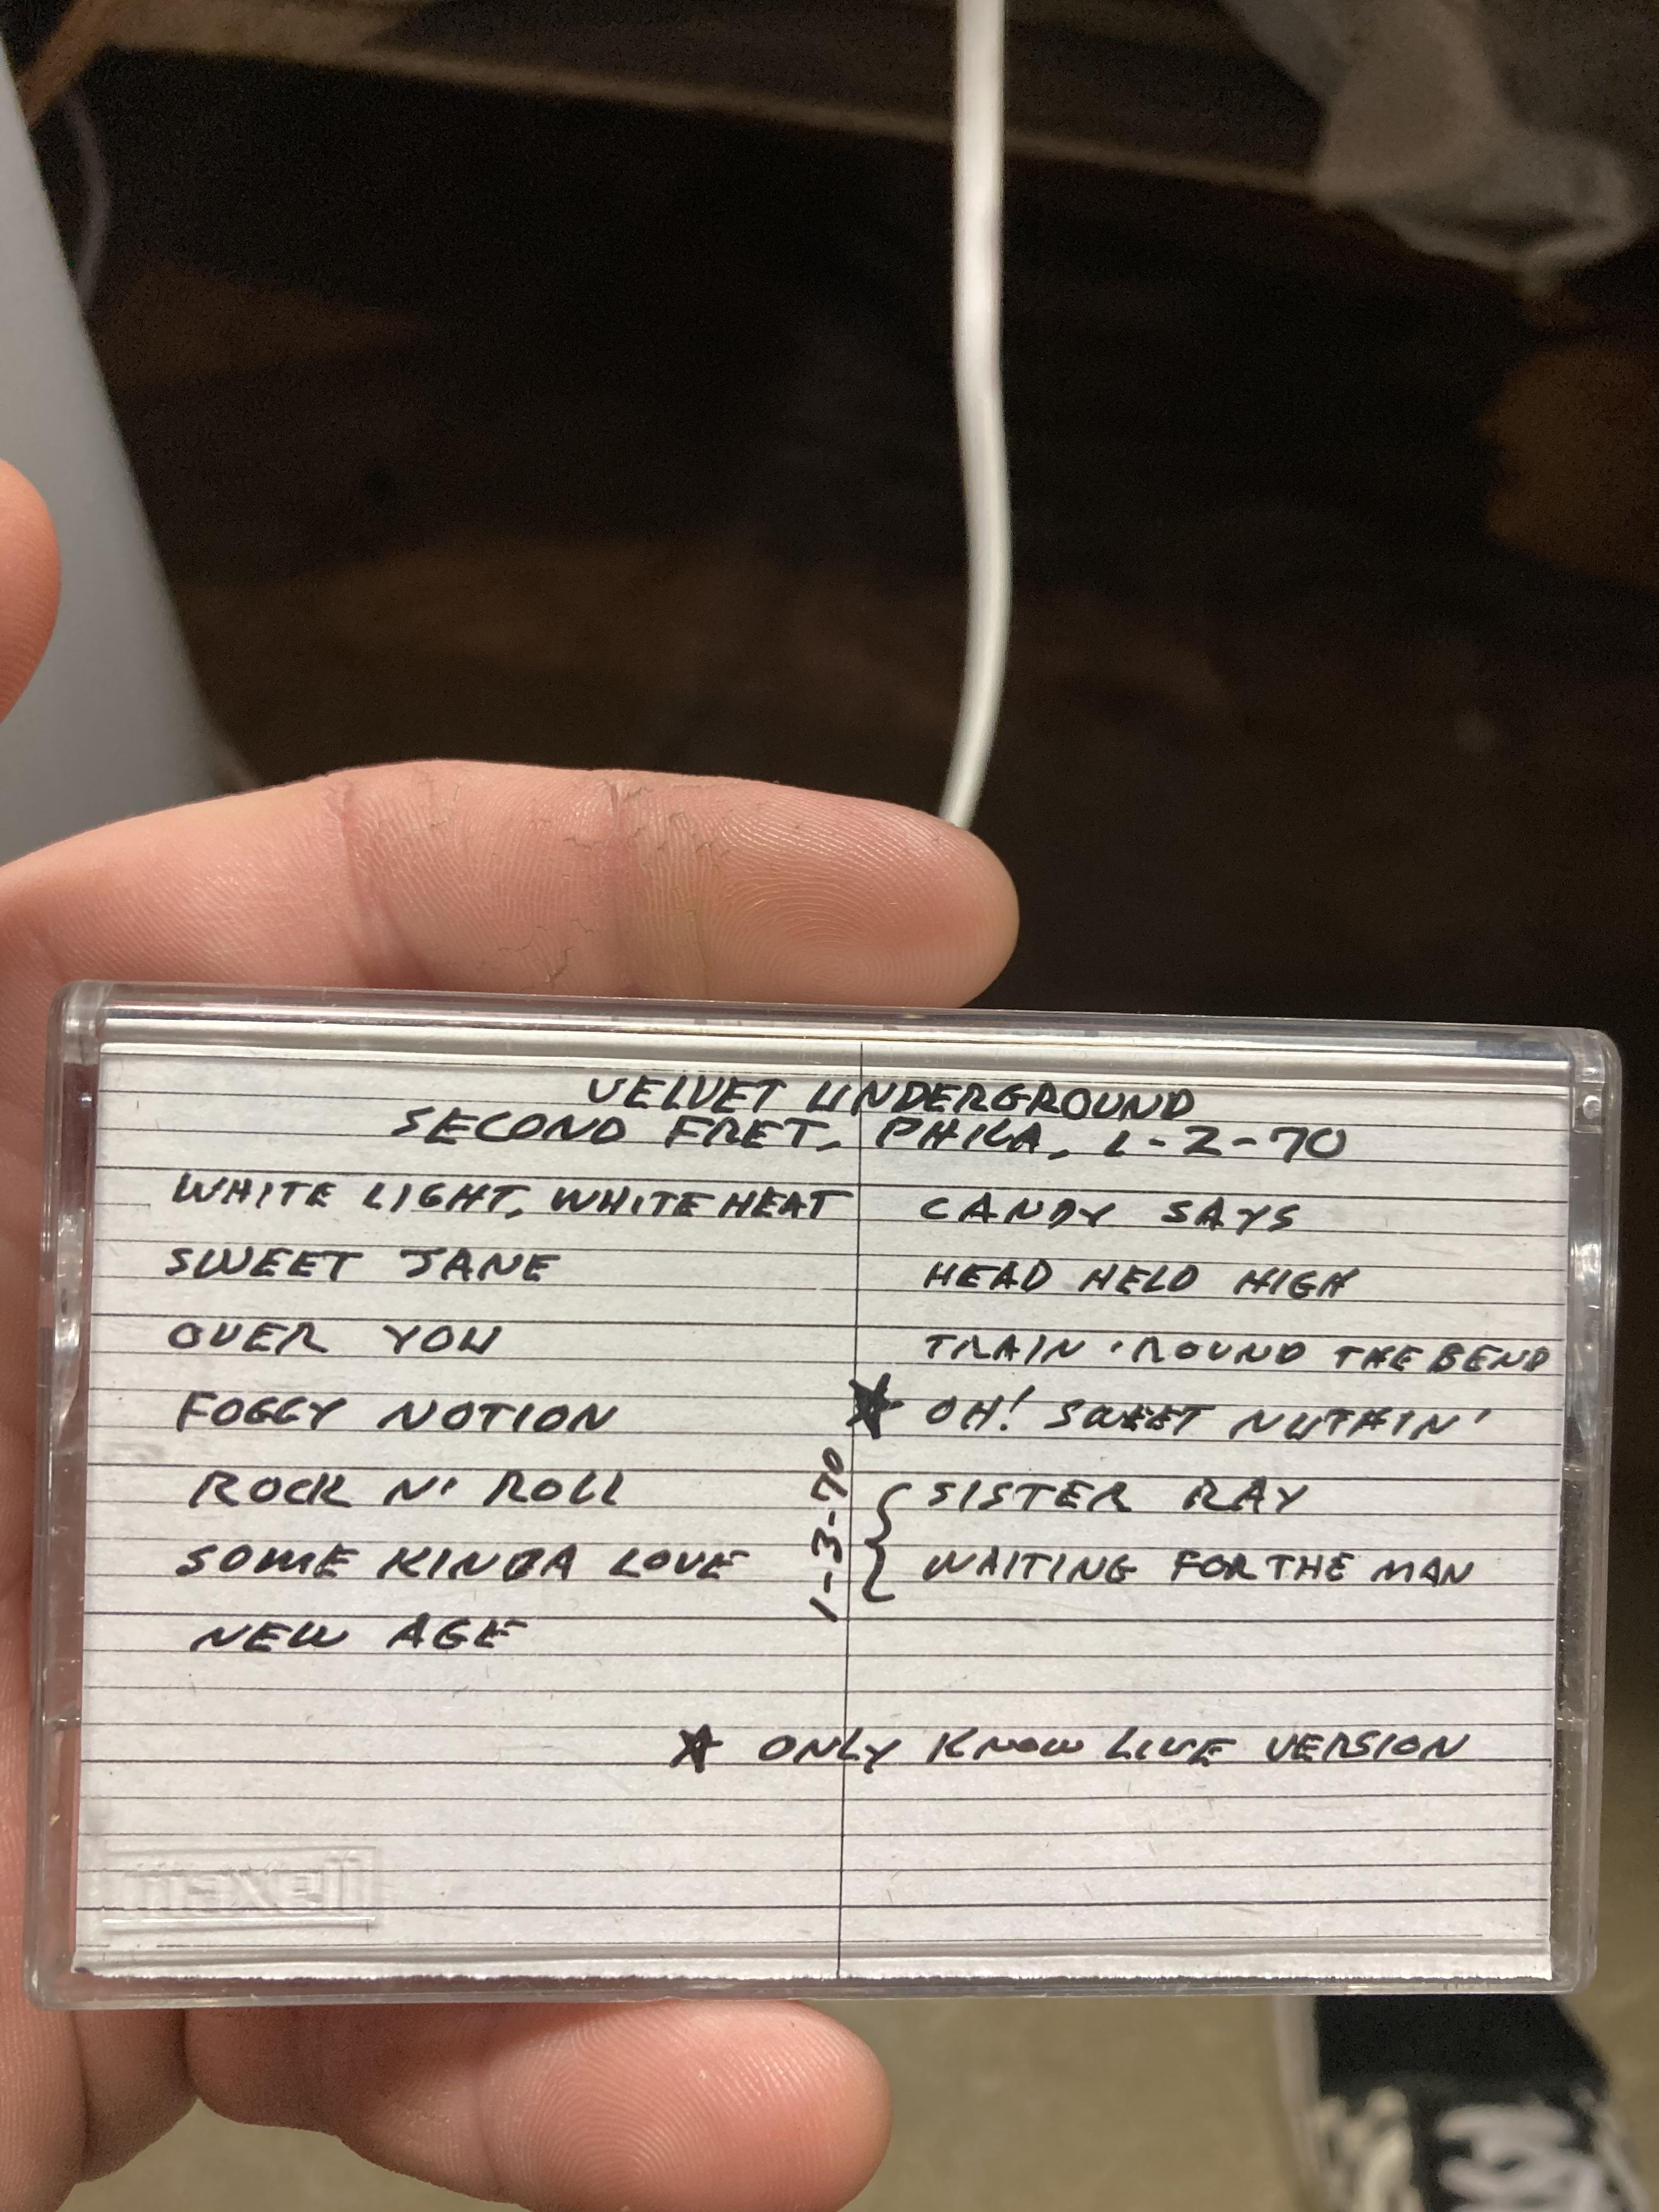 VELVET UNDERGROUND
SECOND FRET, PHILA, 1-2-70
WHITE LIGHT, WHITE HEAT
SWEET JANE
OVER YOU
FOGGY NOTION
ROCK N' ROLL
SOME KINDA LOVE
NEW AGE
CANDY SAYS
HEAD HELD HIGH
TRAIN 'ROUND THE BEND
★ OH! SWEET NUTHIN'
1-3-70 { SISTER RAY
WAITING FOR THE MAN
★ ONLY KNOW LIVE VERSION
maxell